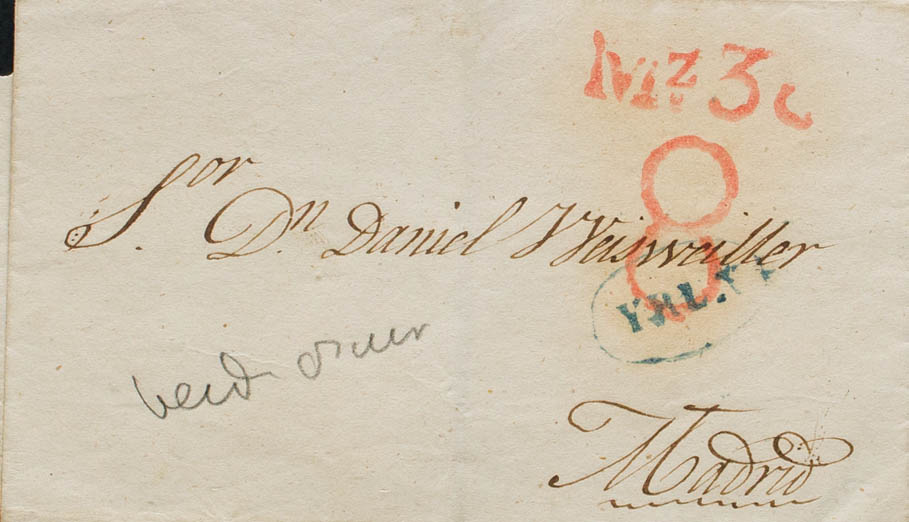 Mz. 30
8
Sor. Dn. Daniel Weisweiller
Madrid